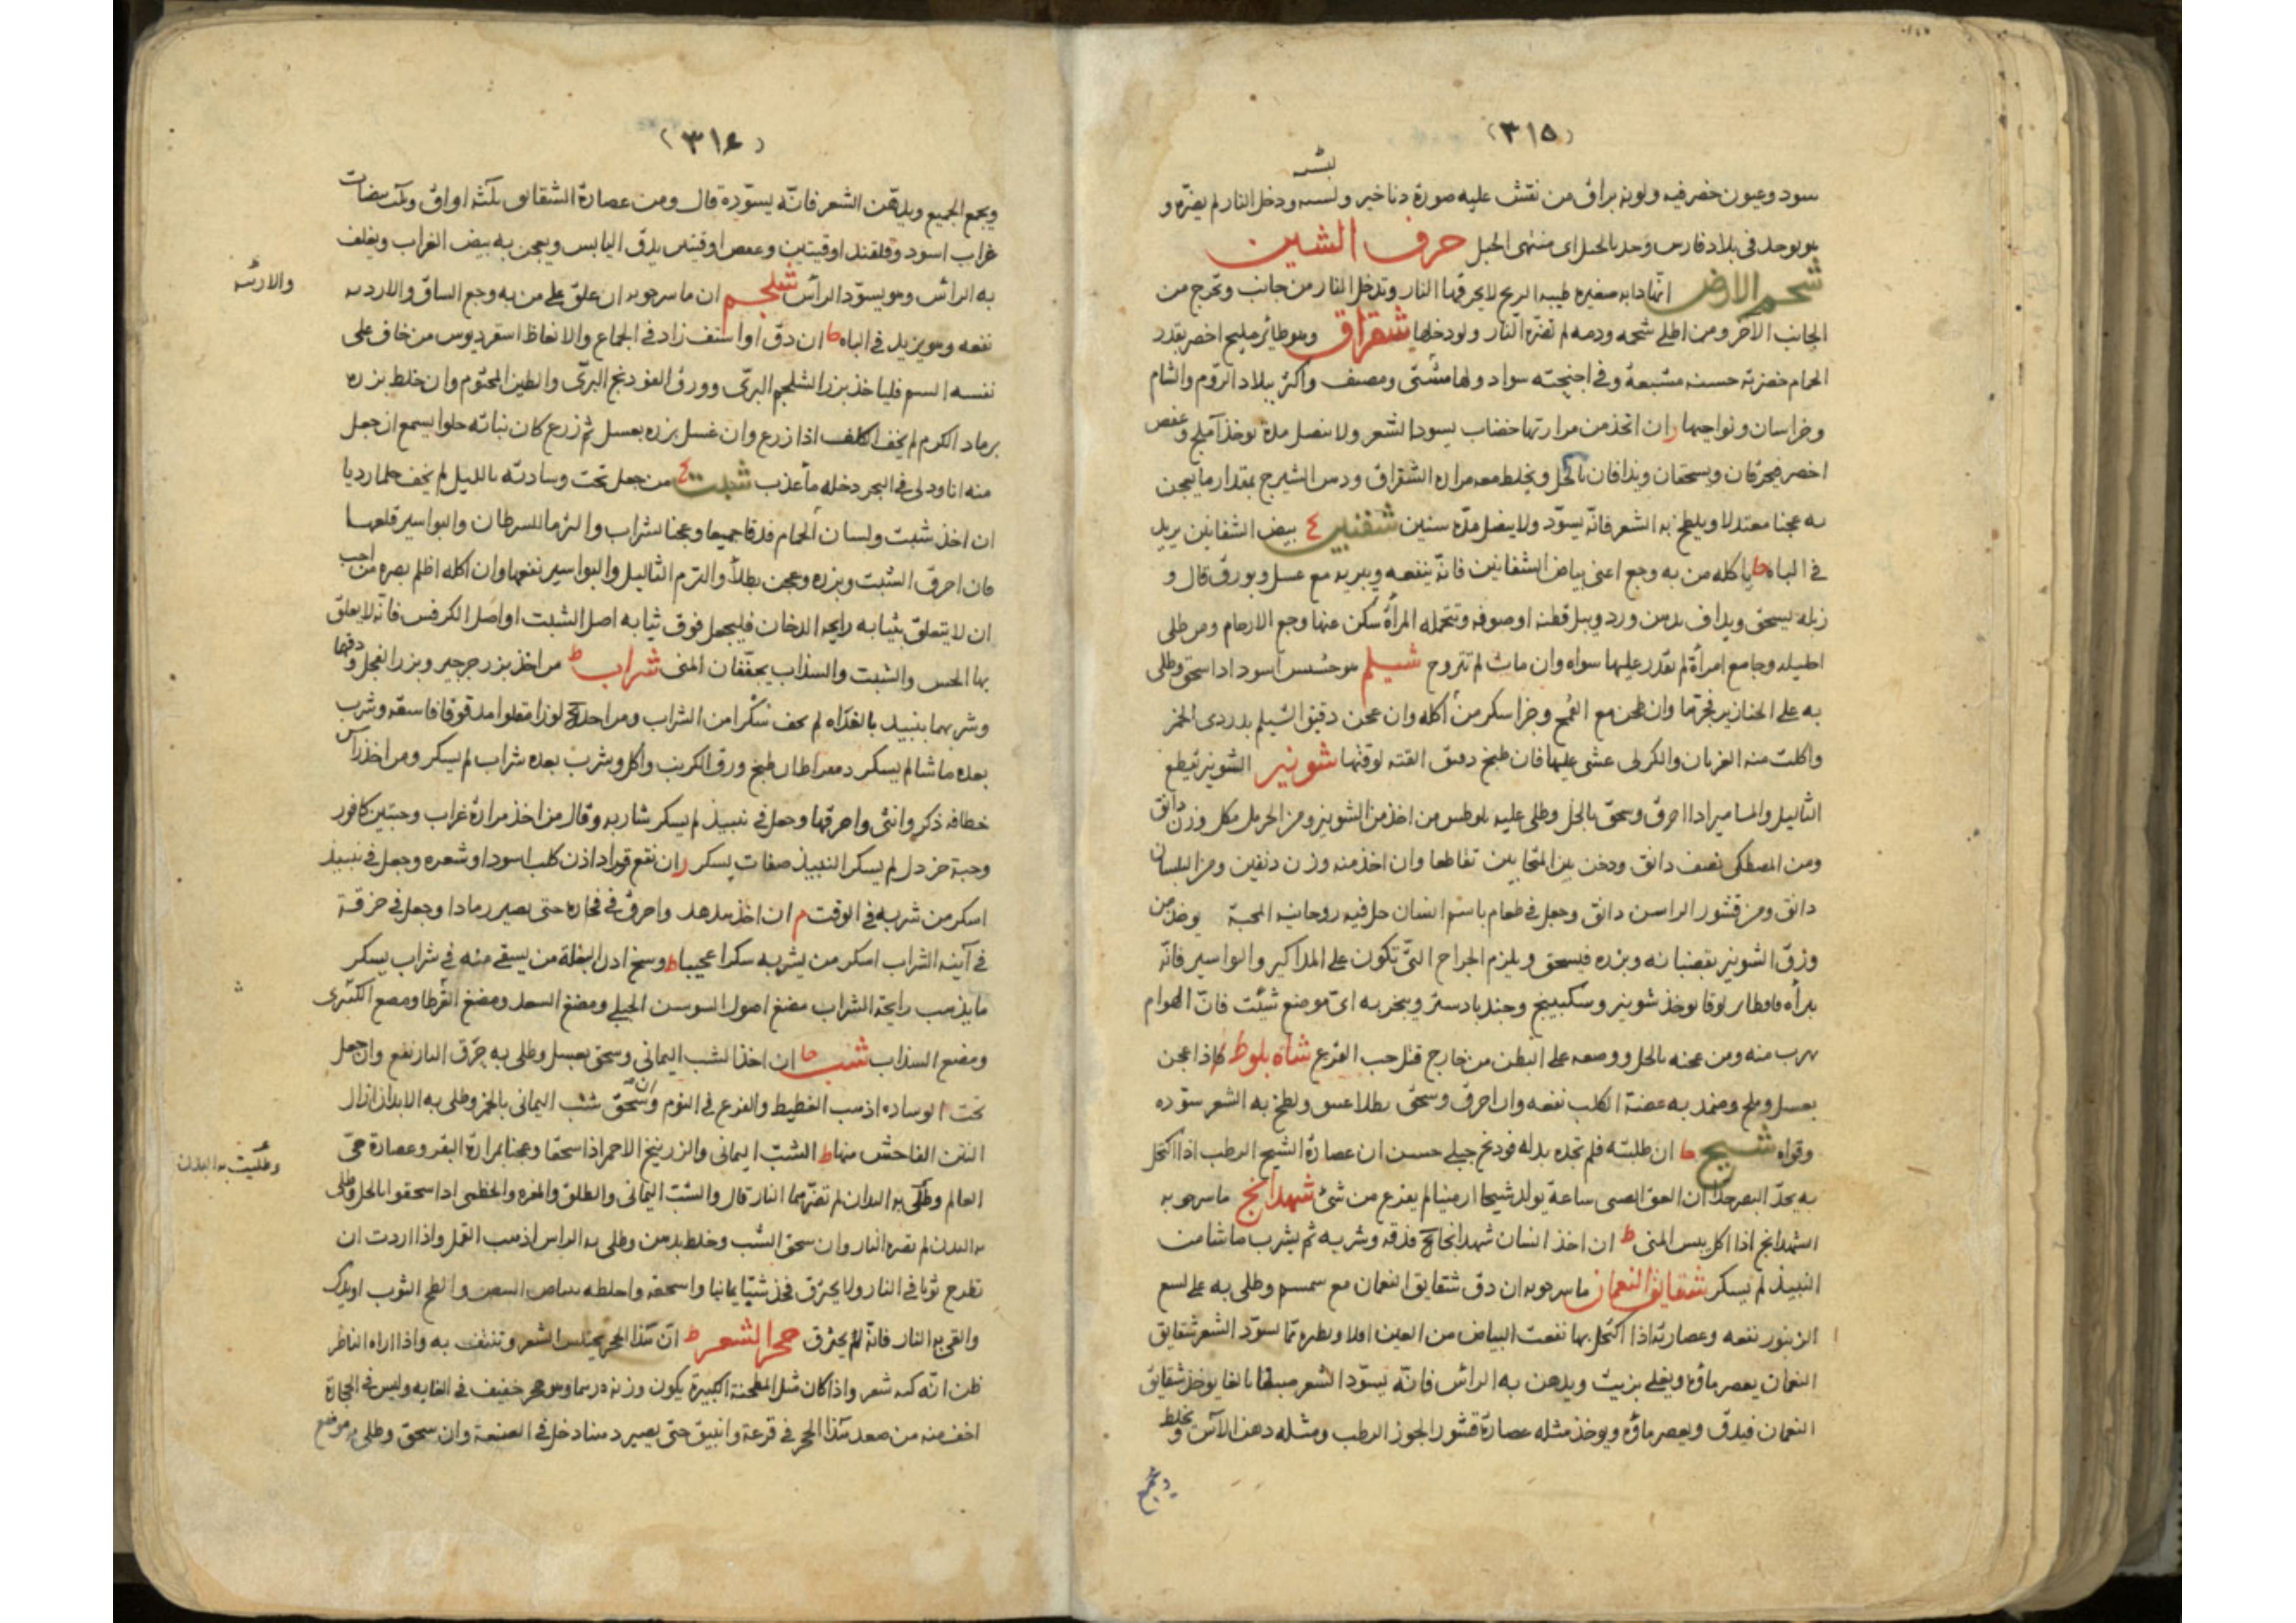 (٣١٥)
سود وعيون خضر فيه ولونه براق من نقش عليه صورة دناخير ولبسه ودخل النار لم يضره و
هو يوجد في بلاد فارس وحد بالجبل اى منتهى الجبل حرف الشين
شحم الارض انها دابه صغيره طيبه الريح لا يحرقها النار وتدخل النار من جانب وتخرج من
الجانب الآخر ومن اطلى شحمه ودمه لم تضره النار ولو دخلها شقراق وهو طائر مليح اخضر بقدر
الحمام خضرته حسنه مشبعة وفى اجنحته سواد ولها مشتى ومصيف واكثر ببلاد الروم والشام
وخراسان ونواحيها ان اتخذ من مرارتها خضاب يسود الشعر ولا ينصل مدة يوخذ آملج وعفص
اخضر فيحرقان ويسحقان ويدافان بالخل ويخلط معه مرارة الشقراق ودهن الشيرج بمقدار ما يعجن
به عجنا معتدلا ويلطخ به الشعر فانه يسود ولا ينصل مدة سنين شفنين بيض الشفانين يزيد
في الباه يا كله من به وجع اعنى بياض الشفانين فانه ينفعه ويبريه مع عسل وبورق قال و
زبله يسحق ويداف بدهن ورد ويبل قطنة او صوفه وتتحمله المرأة سكن عنها وجع الارحام ومن طلى
احليله وجامع امرأة لم يقدر عليها سواه وان ماث لم تتروح شيلم هو حشيش اسود اذا سحق وطلى
به على الخنازير فجرها وان طحن مع القمح وخبز اسكر من أكله وان عجن دقيق الشيلم بدردى الخمر
واكلت منه الغربان والكركى غشى عليها فان طبخ شونيز الشونيز يقطع
الثاليل والمسامير اذا احرق وسحق بالخل وطلى عليه من اخذ من الشونيز ومن الحرمل مكل وزن دانق
ومن المصطكى نصف دانق ودخن بين المتحابين تقاطعا وان اخذ منه وزن دنقين ومن البلسان
دانق ومن قشور الراسن دانق وجعل في طعام باسم انسان حل فيه روحانيه المحبة يوخذ من
ورق الشونيز بقضبانه وبزره فيسحق ويلزم الجراح التى تكون على المذاكير والبواسير فانه
يبرأه يوخذ شونيز وسكبينج وجندبادستر ويبخر به اى موضع شئت فان الهوام
تهرب منه ومن عجنه بالخل ووضعه على البطن من خارج قتل حب القرع شاه بلوط اذا عجن
بعسل وملح وضمد به عضة الكلب نفعه وان احرق وسحق ولطخ به الشعر سوده
وقواه شيح ان طلبته فلم تجده بدله فودنج جبلى حسن ان عصارة الشيح الرطب اذا اكتحل
به يحد البصر جدا ان لعق الصبى ساعة يولد شيحا ارمنيا لم يفزع من شئ شهدانج ماسرجويه
الشهدانج اذا اكل يبس المنى ان اخذ انسان شهدانجا فدقه وشربه ثم يشرب ما شا من
النبيذ لم يسكر شقايق النعمان ماسرجويه ان دق شقايق النعمان مع سمسم وطلى به على لسع
الزنبور نفعه وعصارته اذا اكتحل بها نفعت البياض من العين يسود الشعر شقايق
النعمان يعصر ماؤه ويغلى بزيت ويدهن به الرأس فانه يسود الشعر يوخذ شقايق
النعمان فيدق ويعصر ماؤه ويوخذ مثله عصارة قشور الجوز الرطب ومثله دهن الآس ويخلط
ويجمع
(٣١٦)
ويجمع الجميع ويدهن الشعر فانه يسوده قال ومن عصارة الشقايق ثلثه اواق وثلث بيضات
غراب اسود وقلقند اوقيتين وعفص اوقيتين يدق اليابس ويعجن به بيض الغراب ويغلف
به الرأس وهو يسود الرأس شلجم ان ماسرجويه ان علق على من به وجع الساق والارديه
والارنبه
نفعه وهو يزيد في الباه ان دق او استف زاد في الجماع والانعاظ اسقرديوس من خاف على
نفسه السم فلياخذ بزر الشلجم البرى وورق الفودنج البرى والطين المختوم وان خلط بزره
برماد الكرم لم يخف الكلف اذا زرع وان غسل بزره بعسل ثم زرع كان نباته حلوا يسمع ان جعل
منه انا ودلى في البحر دخله ما عذب شبت من جعل تحت وسادته بالليل لم يخف حلما رديا
ان اخذ شبت ولسان الحمام فدقا جميعا وعجنا بشراب والزما للسرطان والبواسير قلعها
فان احرق الشبت وبزره وعجن بطلا والزم الثاليل والبواسير نفعها وان اكله اظلم بصره من احب
ان لا يتعلق بثيابه رايحه الدخان فليجعل فوق ثيابه اصل الشبت او اصل الكرفس فانه لا يعلق
بها الخس والشبت والسذاب يجففان المنى شراب من اخذ بزر جرجير وبزر الفجل ودقهما
وشربهما بنبيذ بالغداه لم يخف سكرا من الشراب ومن اخذ لوزا مقلوا مدقوقا فاستفه وشرب
بعده ما شا لم يسكر طبخ ورق الكرنب وأكل وشرب بعده شراب لم يسكر ومن اخذ رأس
خطافه ذكر وانثى واحرقها وجعل في نبيذ لم يسكر شاربه وقال من اخذ مرارة غراب وحبتين كافور
وحبة خردل لم يسكر النبيذ صفات يسكر ان نقع قراد اذن كلب اسود او شعره وجعل في نبيذ
اسكر من شربه في الوقت ان اخذ هدهد واحرق في فخاره حتى يصير رمادا وجعل في خرقة
في آنيه الشراب اسكر من يشربه سكرا عجيبا وسخ اذن البغلة من يسقى منه في شراب يسكر
ما يذهب رايحة الشراب مضغ اصول السوسن الجبلى ومضغ السعد ومضغ القرظا ومضغ الكمثرى
ومضغ السذاب شب ان اخذ الشب اليمانى وسحق بعسل وطلى به حرق النار نفع وان جعل
تحت الوساده اذهب الغطيط والفزع في النوم وان سحق شب اليمانى بالخمر وطلى به الابدان ازال
النتن الفاحش منها الشب اليمانى والزرنيخ الاحمر اذا سحقا وعجنا بمرارة البقر وعصارة حى
وطليت به اليدان
العالم وطلى به اليدان لم تضرهما النار قال والشب اليمانى والطلق والمغره والخطمى اذا سحقوا بالخل وطلى
به اليدان لم تضره النار وان سحق الشب وخلط بدهن وطلى به الراس اذهب القمل واذا اردت ان
تطرح ثوبا في النار ولا يحترق فخذ شبا يمانيا واسحقه واخلطه ببياض البيض والطخ الثوب او يدك
والقى به النار فانه لم يحترق حجر الشعر ان هذا الحجر يحتلس الشعر وتنتف به واذا اراه الناظر
ظن انه كبه شعر واذا كان مثل المطحنة الكبيرة يكون وزنه درهما وهو حجر خفيف في الغايه وليس في الحجارة
اخف منه من صعد هذا الحجر في قرعة وانبيق حتى يصير دهنا دخل في الصنعة وان سحق وطلى به موضع